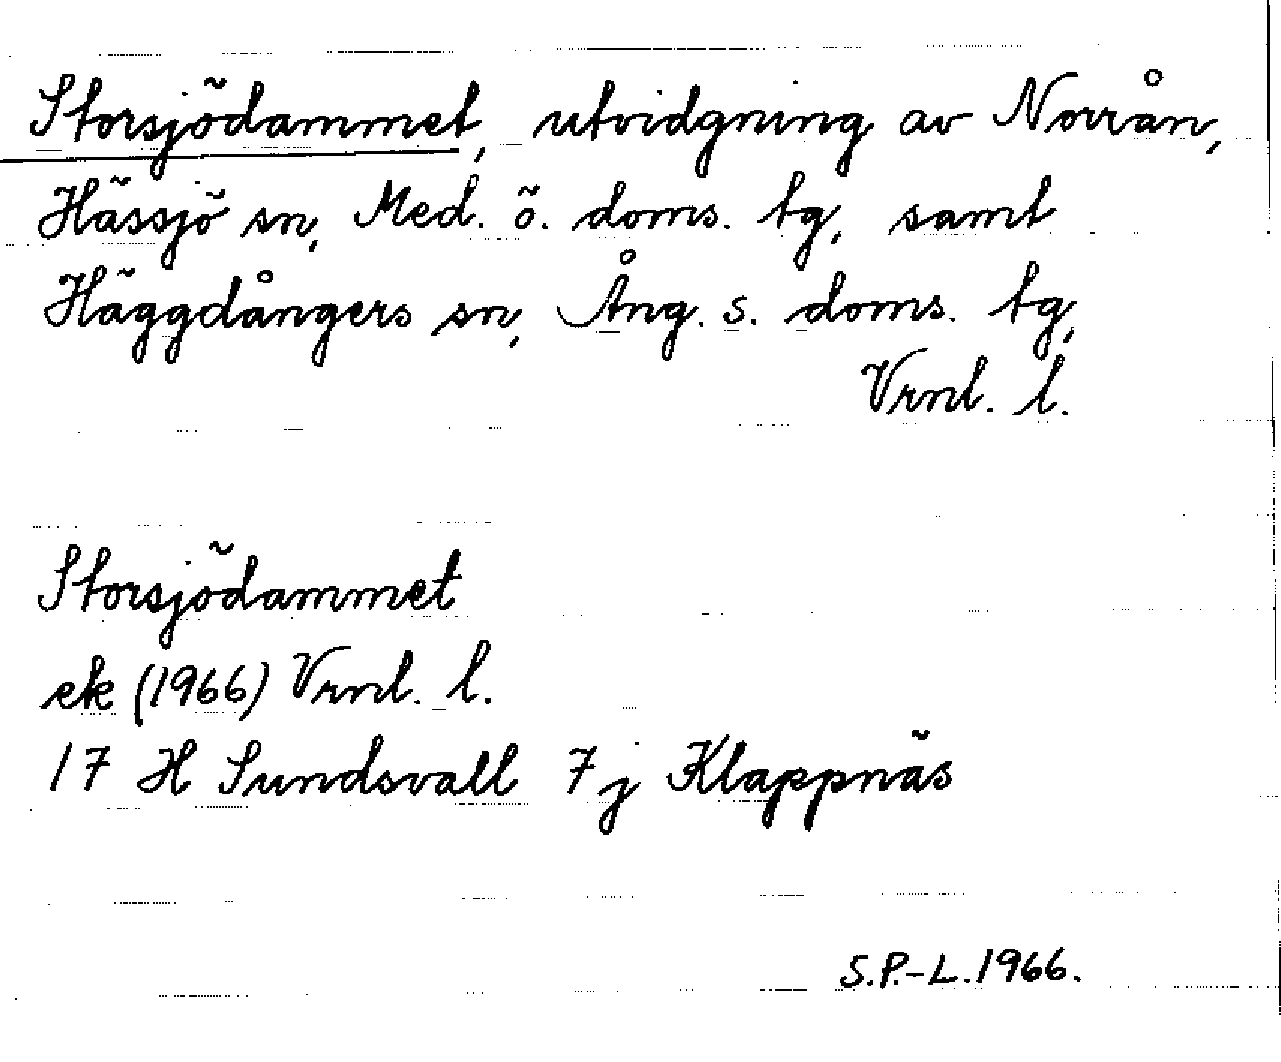 Storsjödammet, utvidgning av Norrån,
Hässjö sn, Med. ö. doms. tg, samt
Häggdångers sn, Ång. s. doms. tg,
Vrnl. l.
Storsjödammet
ek (1966) Vrnl. l.
17 H Sundsvall 7j Klappnäs
S.P.-L. 1966.